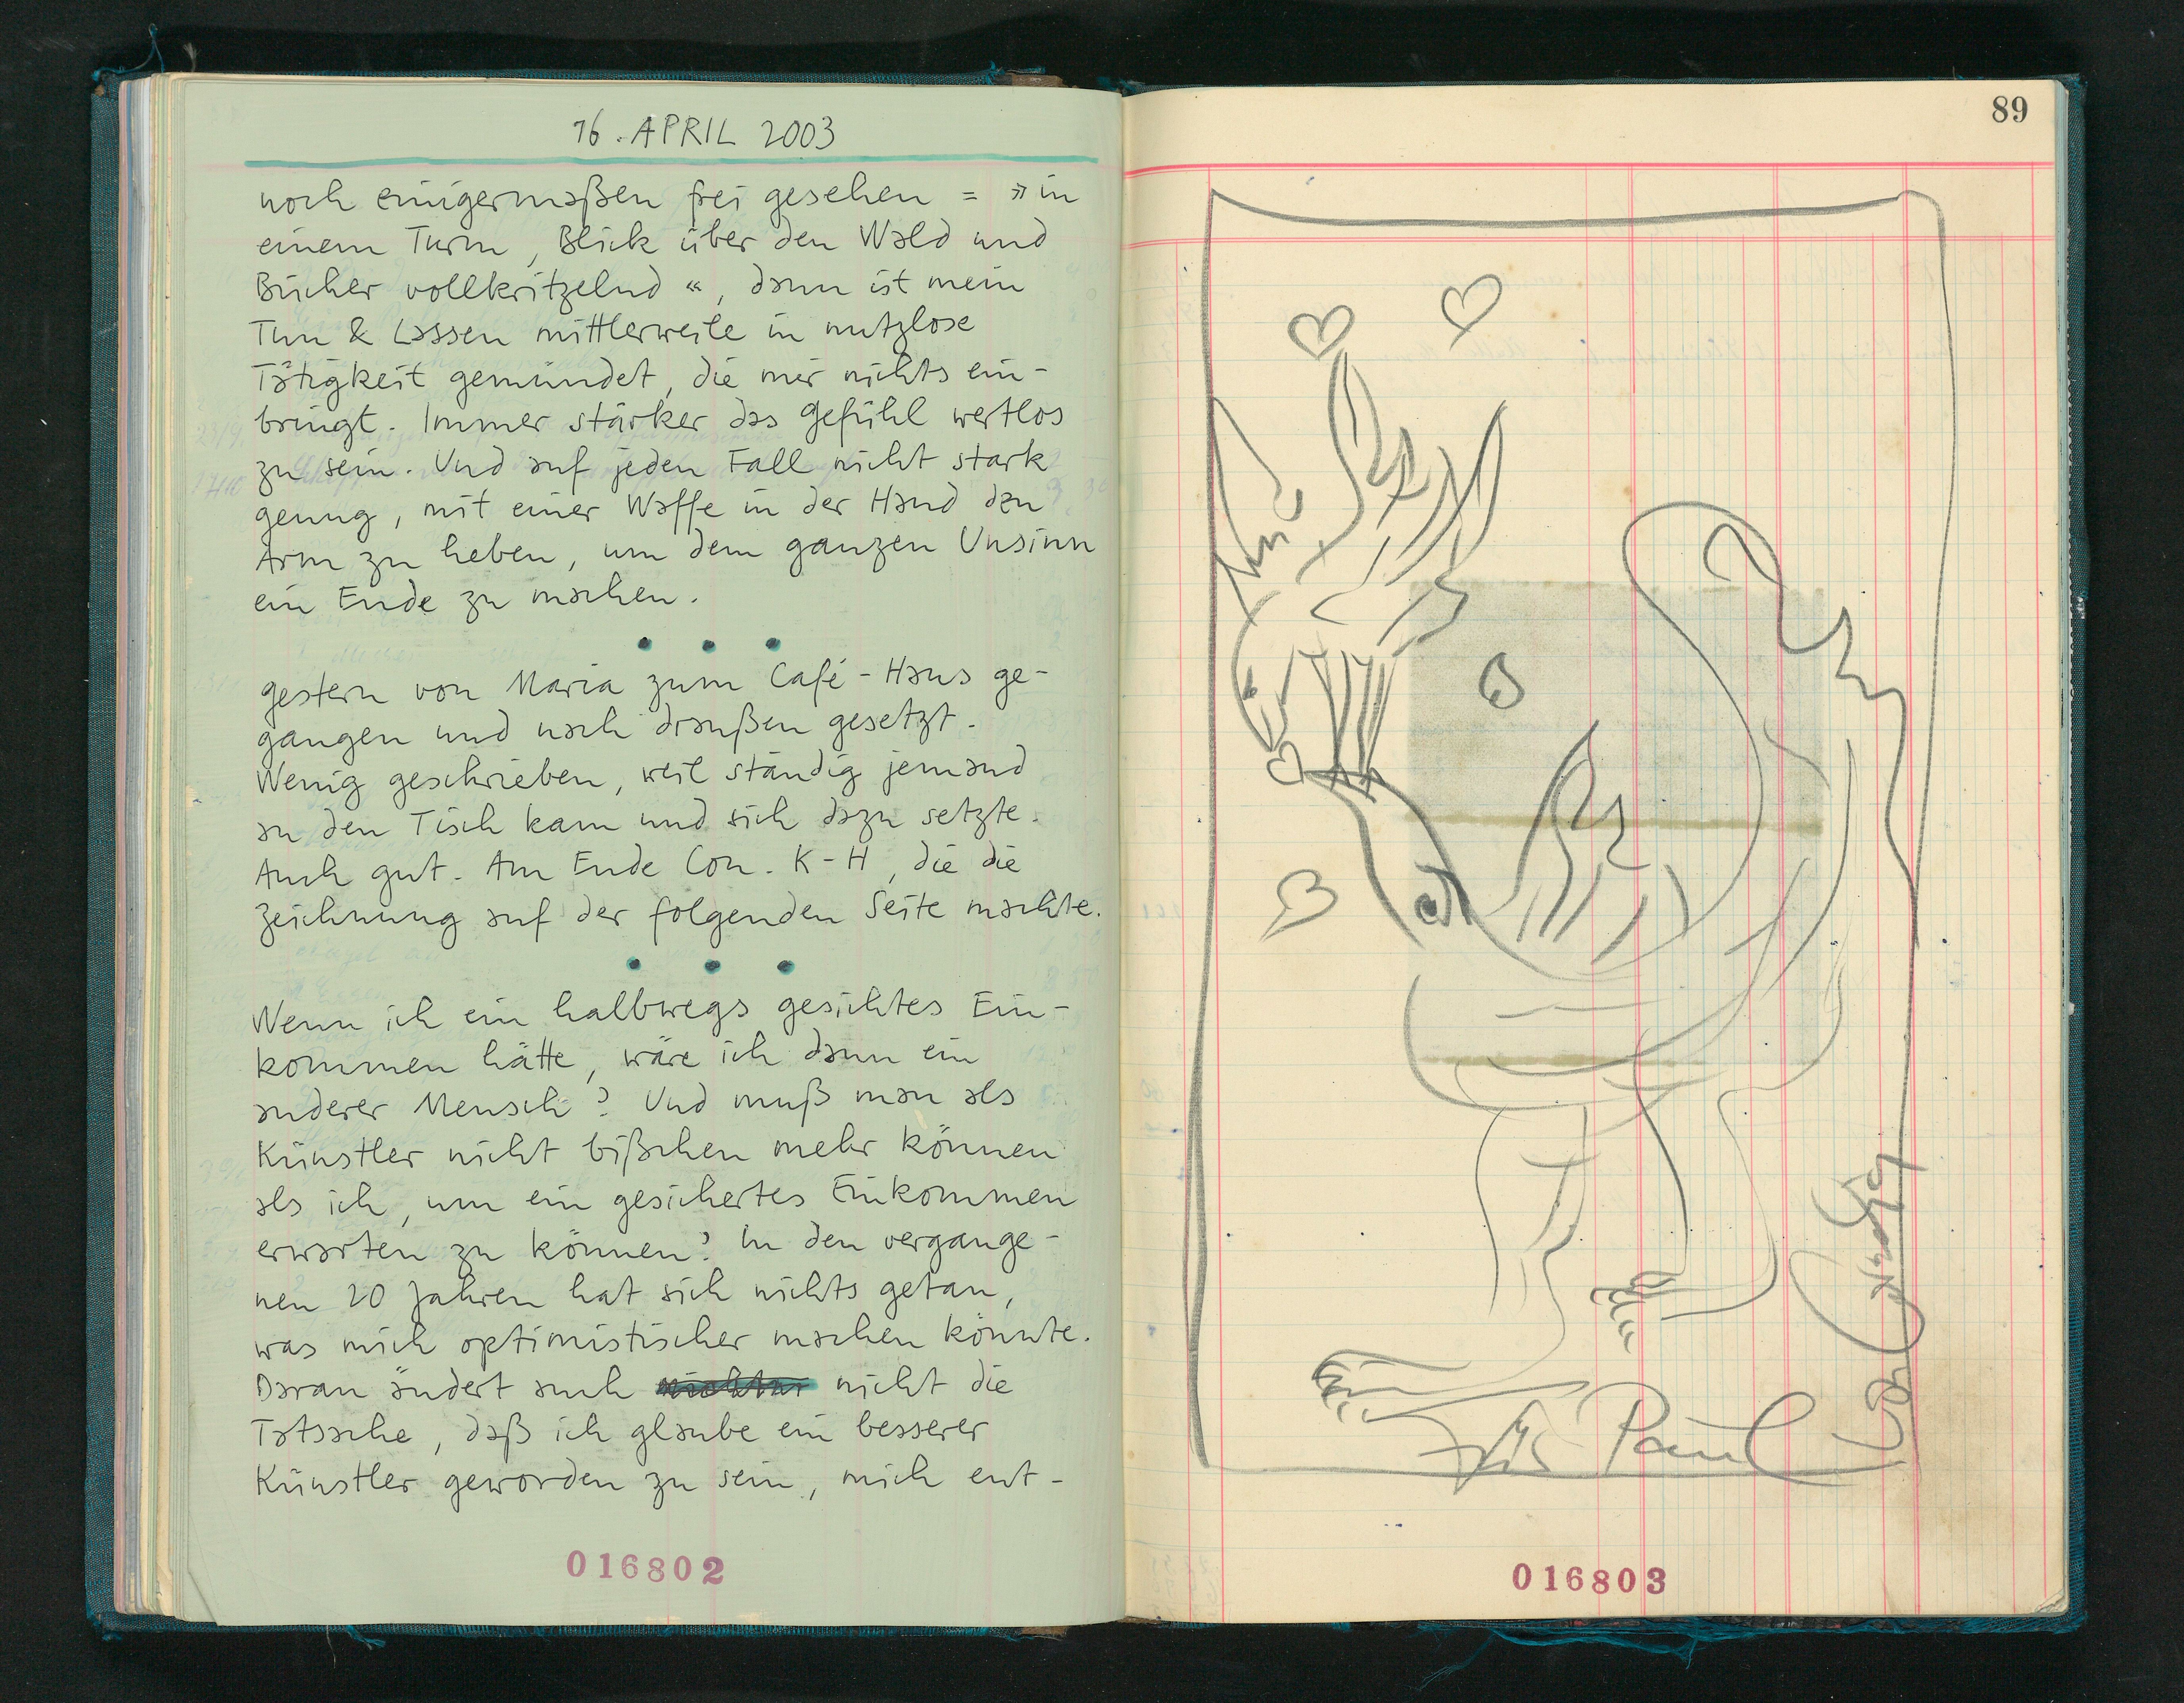 16. APRIL 2003
noch einigermaßen frei gesehen = » in
einem Turm, Blick über den Wald und
Bücher vollkritzelnd «, dann ist mein
Tun & Lassen mittlerweile in nutzlose
Tätigkeit gemündet, die mir nichts ein-
bringt. Immer stärker das Gefühl wertlos
zu sein. Und auf jeden Fall nicht stark
genug, mit einer Waffe in der Hand den
Arm zu heben, um dem ganzen Unsinn
ein Ende zu machen.
• • •
gestern von Maria zum Café-Haus ge-
gangen und nach draußen gesetzt.
Wenig geschrieben, weil ständig jemand
an den Tisch kam und sich dazu setzte.
Auch gut. Am Ende Con. K-H, die die
Zeichnung auf der folgenden Seite machte.
• • •
Wenn ich ein halbwegs gesichtes Ein-
kommen hätte, wäre ich dann ein
anderer Mensch? Und muß man als
Künstler nicht bißchen mehr können
als ich, um ein gesichertes Einkommen
erwarten zu können? In den vergange-
nen 20 Jahren hat sich nichts getan,
was mich optimistischer machen könnte.
Daran ändert auch nicht die
Tatsache, daß ich glaube ein besserer
Künstler geworden zu sein, mich ent-
016802
89
Paul
016803